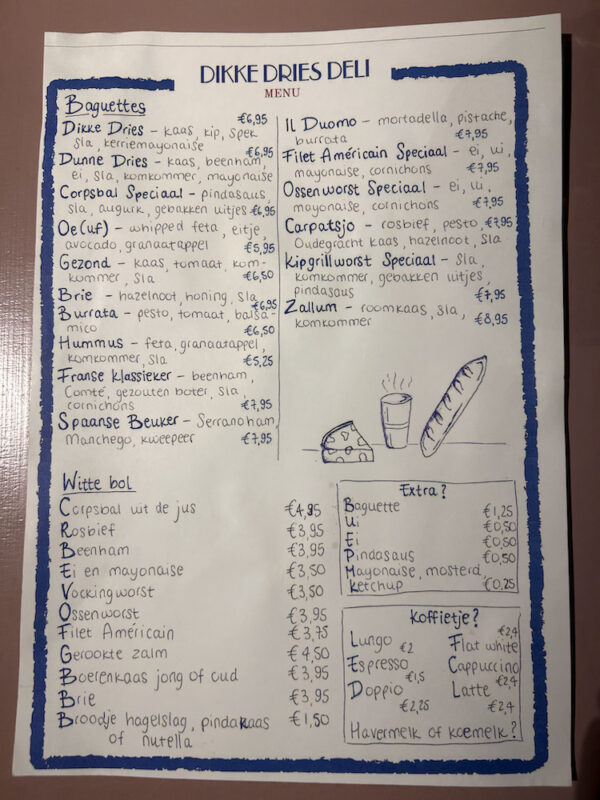 DIKKE DRIES DELI
MENU
Baguettes
Dikke Dries - kaas, kip, spek €6,95
sla, kerriemayonaise
Dunne Dries - kaas, beenham, €6,95
ei, sla, komkommer, mayonaise
Corpsbal Speciaal - pindasaus,
sla, augurk, gebakken uitjes €6,95
Oe(uf) - whipped feta, eitje,
avocado, granaatappel €5,95
Gezond - kaas, tomaat, kom-
kommer, sla €6,50
Brie - hazelnoot, honing, sla €6,95
Burrata - pesto, tomaat, balsa-
mico €6,50
Hummus - feta, granaatappel,
komkommer, sla €5,25
Franse klassieker - beenham,
Comté, gezouten boter, sla,
cornichons €7,95
Spaanse Beuker - Serranoham,
Manchego, kweepeer €7,95
Il Duomo - mortadella, pistache,
burrata €7,95
Filet Américain Speciaal - ei, ui,
mayonaise, cornichons €7,95
Ossenworst Speciaal - ei, ui,
mayonaise, cornichons €7,95
Carpatsjo - rosbief, pesto, €7,95
Oudegracht kaas, hazelnoot, sla
Kipgrillworst Speciaal - sla,
komkommer, gebakken uitjes,
pindasaus €7,95
Zallum - roomkaas, sla,
komkommer €8,95
Witte bol
Corpsbal uit de jus €4,95
Rosbief €3,95
Beenham €3,95
Ei en mayonaise €3,50
Vockingworst €3,50
Ossenworst €3,95
Filet Américain €3,75
Gerookte zalm €4,50
Boerenkaas jong of oud €3,95
Brie €3,95
Broodje hagelslag, pindakaas €1,50
of nutella
Extra?
Baguette €1,25
Ui €0,50
Ei €0,50
Pindasaus €0,50
Mayonaise, mosterd,
ketchup €0,25
Koffietje?
Lungo €2
Espresso €1,5
Doppio €2,25
Flat white €2,4
Cappuccino €2,4
Latte €2,4
Havermelk of koemelk?